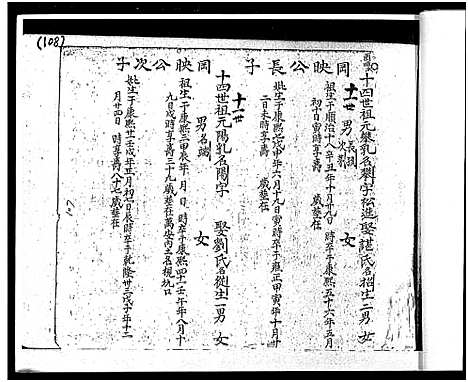 (108)
岡映公長子
十四世祖元槃乳名攀字松進娶諶氏名招生二男 女
十一世 男 長 次
祖生于順治十八年辛丑年十月廿九 時卒于康熙五十六年五月
初十日寅時享壽 歲葬在
妣生于康熙七戊申年六月十九日寅時卒于雍正甲寅年十月廿
二日未時享壽 歲葬在
岡映公次子
十四世祖元陽乳名陽字 娶劉氏名從生一男 女
十一世 男名端 女
祖生于康熙三甲辰年 月 日 時卒于康熙四十一壬午年八月十
九日戌時享壽三十九歲葬在萬安內 名槐坑口
妣生于康熙廿一壬戌年五月初七日辰時卒于乾隆卅三戊子年十二
月廿四日 時享壽八十七歲葬在